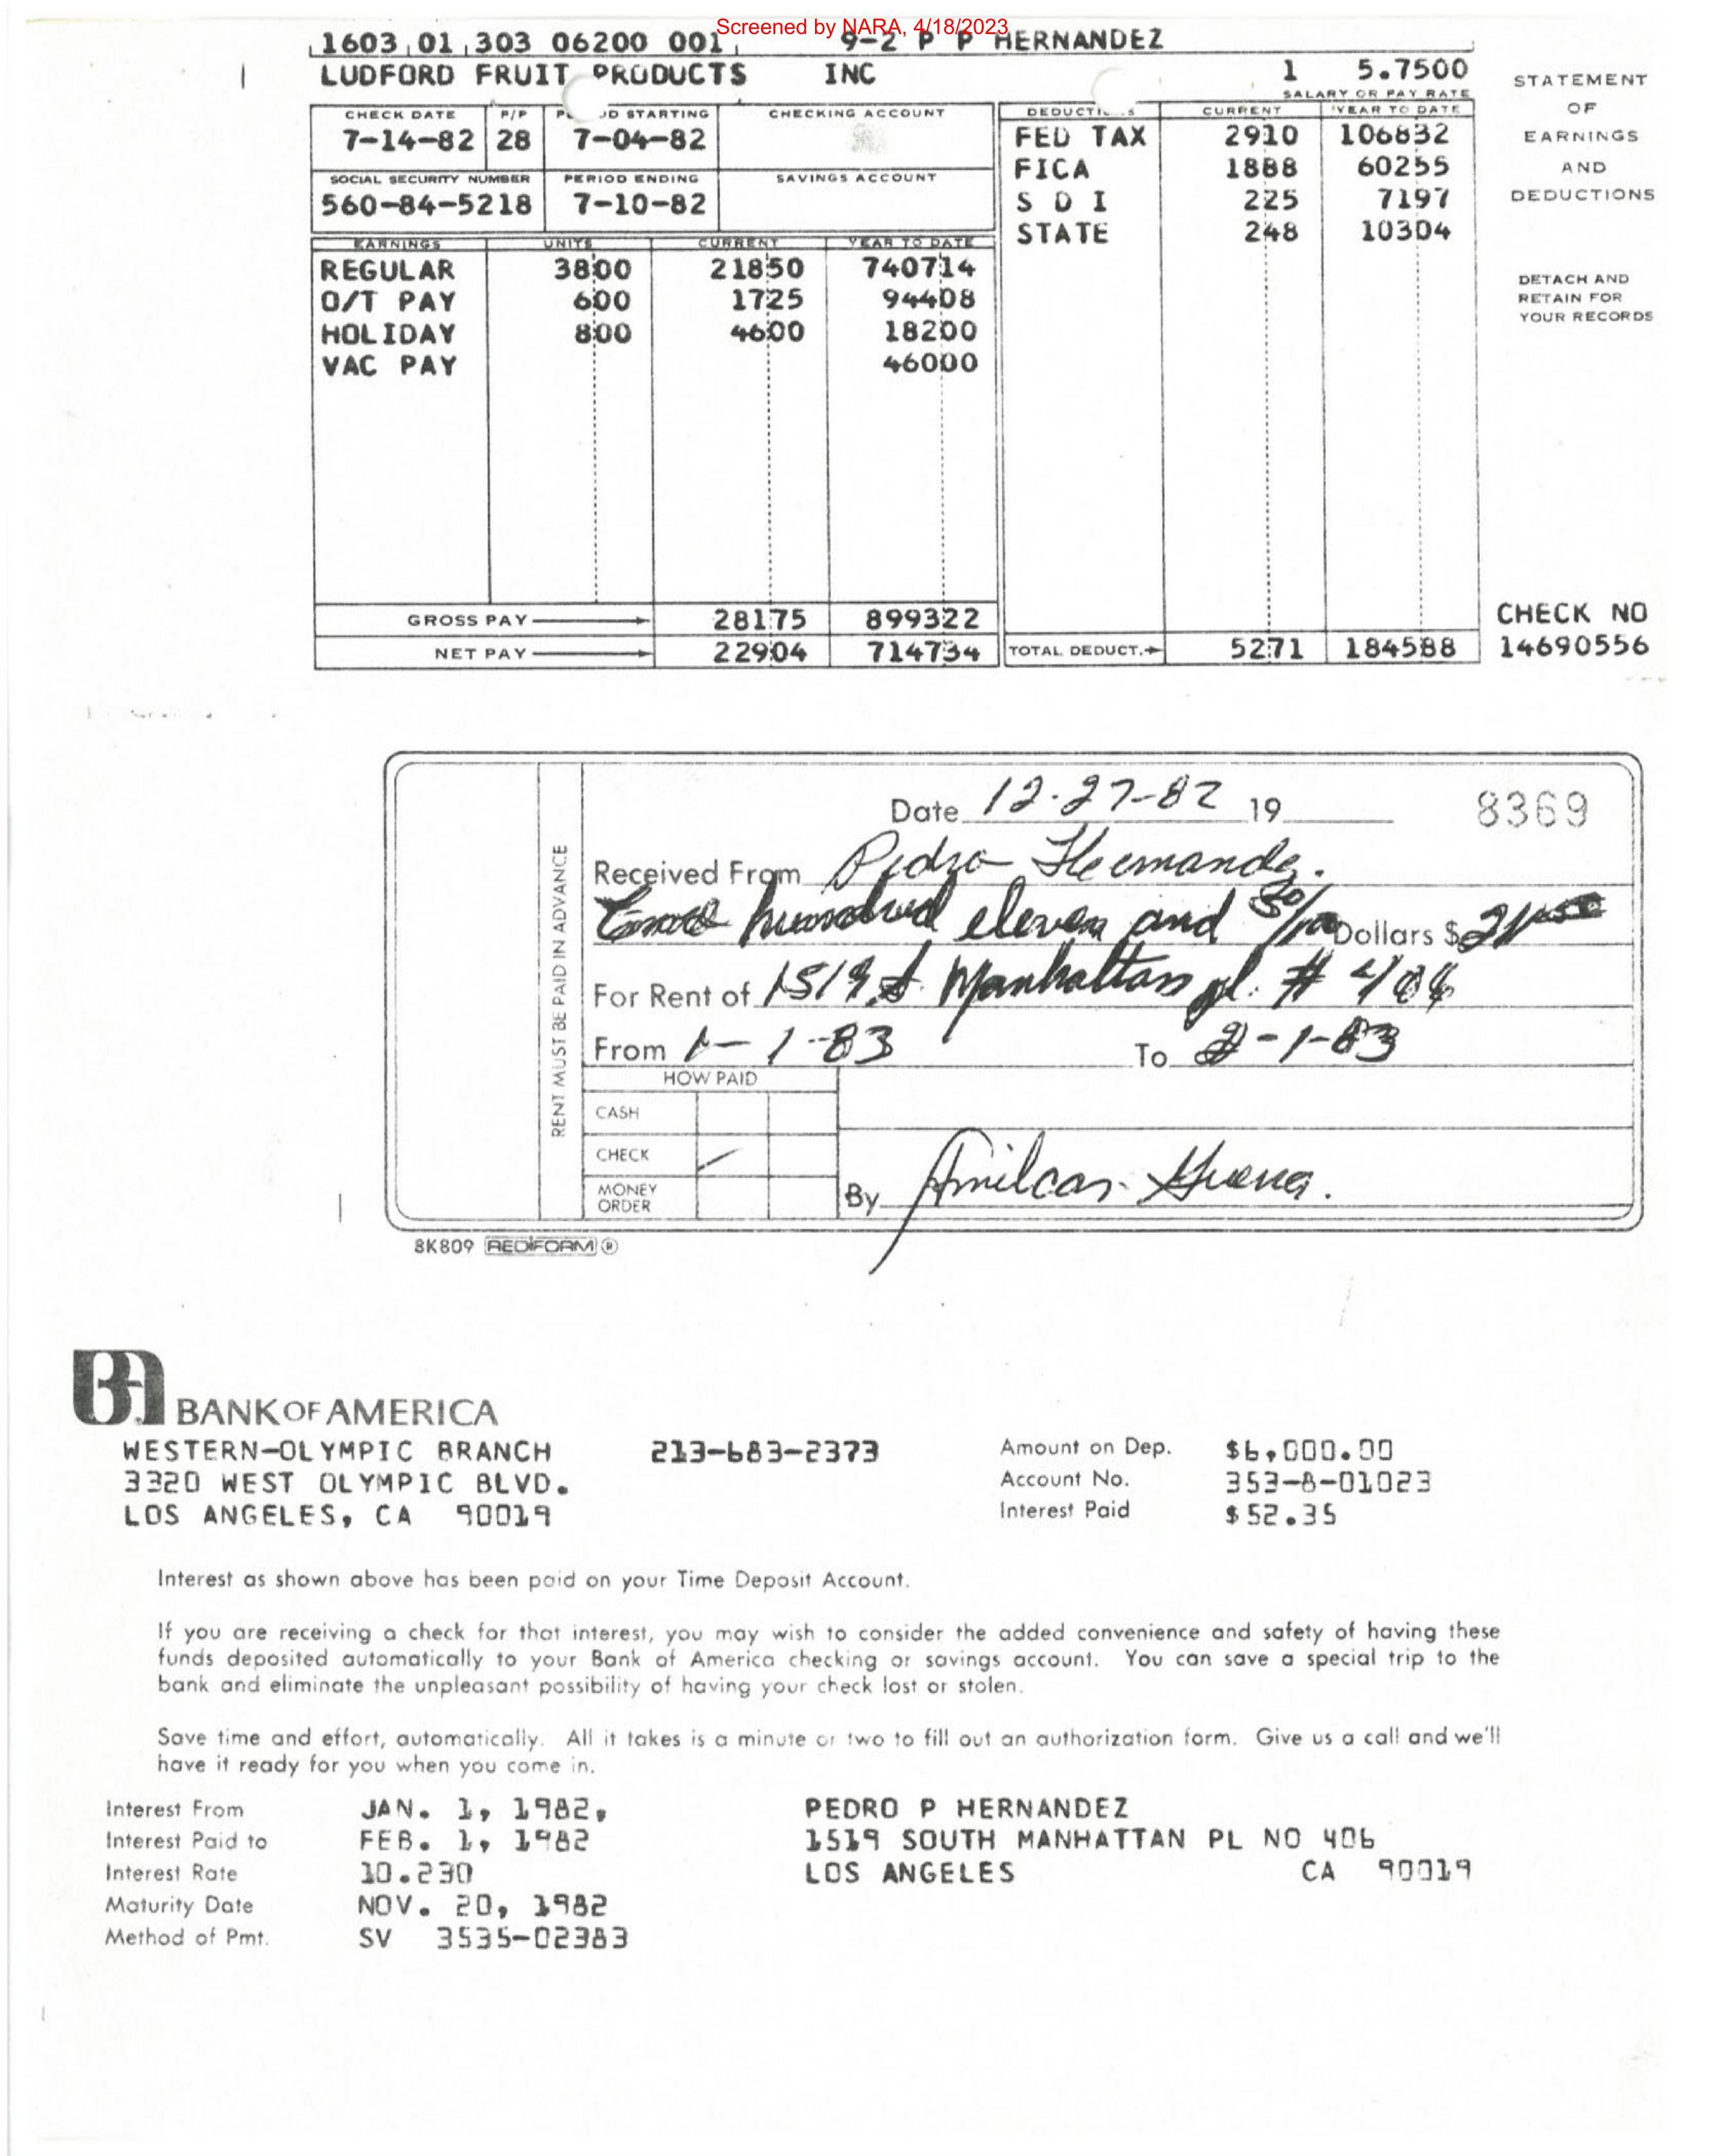 Screened by NARA, 4/18/2023
1603 01 303 06200 001 9-2 P P HERNANDEZ
LUDFORD FRUIT PRODUCTS INC 1 5.7500
SALARY OR PAY RATE
STATEMENT
OF
EARNINGS
AND
DEDUCTIONS
CHECK DATE P/P STARTING CHECKING ACCOUNT
7-14-82 28 7-04-82
SOCIAL SECURITY NUMBER PERIOD ENDING SAVINGS ACCOUNT
560-84-5218 7-10-82
EARNINGS UNITS CURRENT YEAR TO DATE
REGULAR 3800 21850 740714
O/T PAY 600 1725 94408
HOLIDAY 800 4600 18200
VAC PAY 46000
GROSS PAY 28175 899322
NET PAY 22904 714734
CURRENT YEAR TO DATE
FED TAX 2910 106832
FICA 1888 60255
S D I 225 7197
STATE 248 10304
TOTAL DEDUCT. 5271 184588
DETACH AND
RETAIN FOR
YOUR RECORDS
CHECK NO
14690556
RENT MUST BE PAID IN ADVANCE
Date 12-27-82 19 8369
Received From Pedro Hernandez.
hundred eleven and 50/100 Dollars $
For Rent of 1519 S. Manhattan pl. # 406
From 1-1-83 To 2-1-83
HOW PAID
CASH
CHECK
MONEY
ORDER
By Amilcar
8K809 REDIFORM ®
BA BANK OF AMERICA
WESTERN-OLYMPIC BRANCH 213-683-2373
3320 WEST OLYMPIC BLVD.
LOS ANGELES, CA 90019
Amount on Dep. $6,000.00
Account No. 353-8-01023
Interest Paid $52.35
Interest as shown above has been paid on your Time Deposit Account.
If you are receiving a check for that interest, you may wish to consider the added convenience and safety of having these
funds deposited automatically to your Bank of America checking or savings account. You can save a special trip to the
bank and eliminate the unpleasant possibility of having your check lost or stolen.
Save time and effort, automatically. All it takes is a minute or two to fill out an authorization form. Give us a call and we'll
have it ready for you when you come in.
Interest From JAN. 1, 1982,
Interest Paid to FEB. 1, 1982
Interest Rate 10.230
Maturity Date NOV. 20, 1982
Method of Pmt. SV 3535-02383
PEDRO P HERNANDEZ
1519 SOUTH MANHATTAN PL NO 406
LOS ANGELES CA 90019